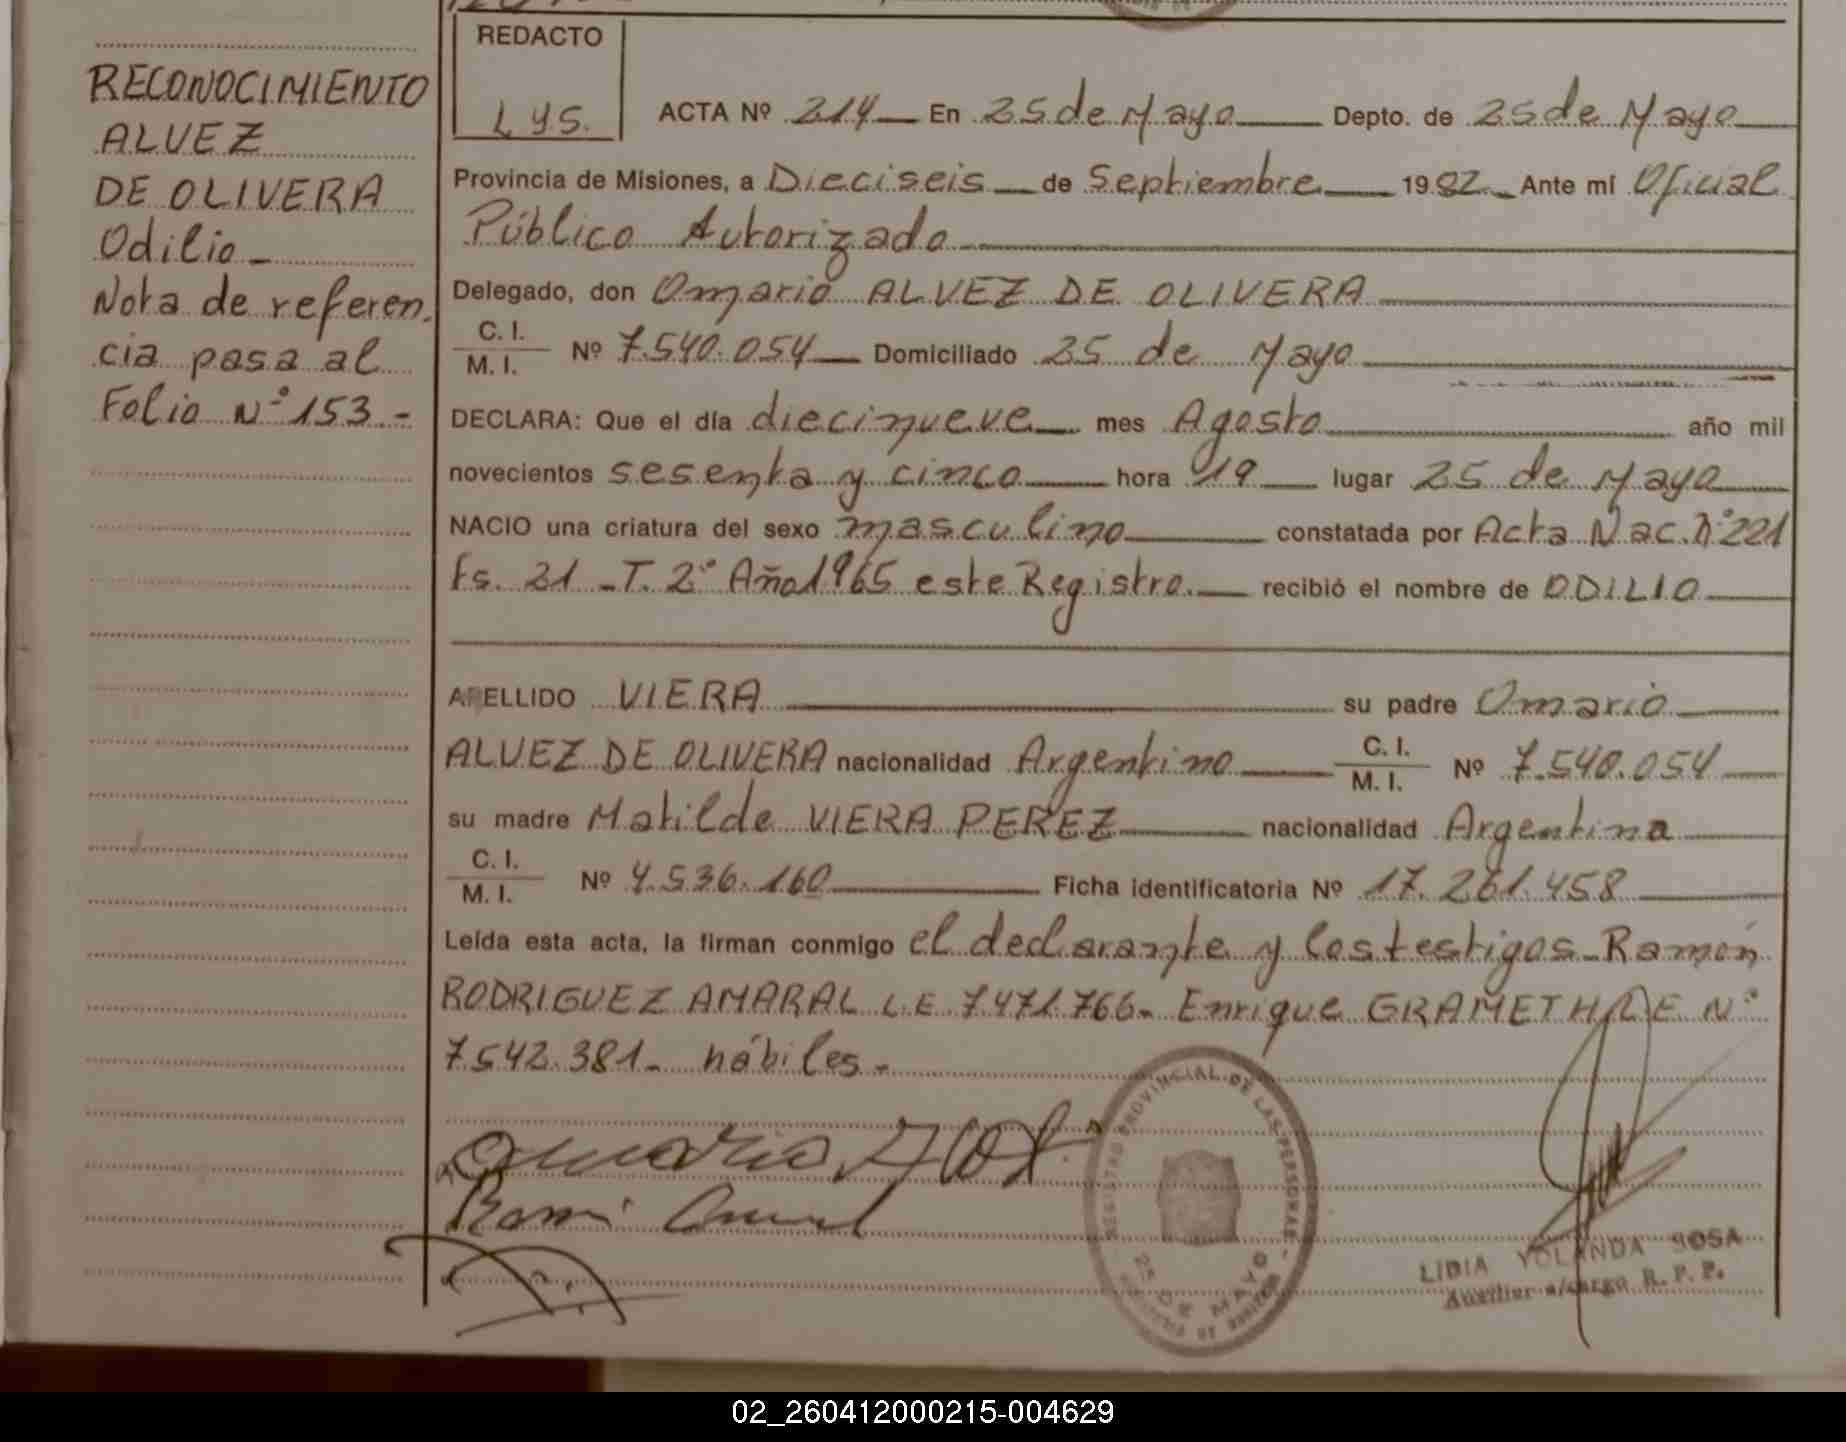 RECONOCIMIENTO
ALVEZ
DE OLIVERA
Odilio_
Nota de referen_
cia pasa al
Folio Nº 153.-
REDACTO
L y S.
ACTA Nº 214 En 25 de Mayo Depto. de 25 de Mayo
Provincia de Misiones, a Dieciseis de Septiembre 1982 Ante mí Oficial
Público Autorizado
Delegado, don Omario ALVEZ DE OLIVERA
C. I.
M. I. Nº 7.540.054 Domiciliado 25 de Mayo
DECLARA: Que el día diecinueve mes Agosto año mil
novecientos sesenta y cinco hora 19 lugar 25 de Mayo
NACIO una criatura del sexo masculino constatada por Acta Nac. Nº 221
fs. 21 - T. 2º Año 1965 este Registro. recibió el nombre de ODILIO
APELLIDO VIERA su padre Omario
ALVEZ DE OLIVERA nacionalidad Argentino C. I. M. I. Nº 7.540.054
su madre Matilde VIERA PEREZ nacionalidad Argentina
C. I.
M. I. Nº 4.536.160 Ficha identificatoria Nº 17.261.458
Leída esta acta, la firman conmigo el declarante y los testigos - Ramón
RODRIGUEZ AMARAL L.E 7.471.766- Enrique GRAMETH L E Nº
7.542.381- hábiles -
REGISTRO PROVINCIAL DE LAS PERSONAS
25 DE MAYO
LIDIA YOLANDA SOSA
Auxiliar a/cargo R. P. P.
02_260412000215-004629